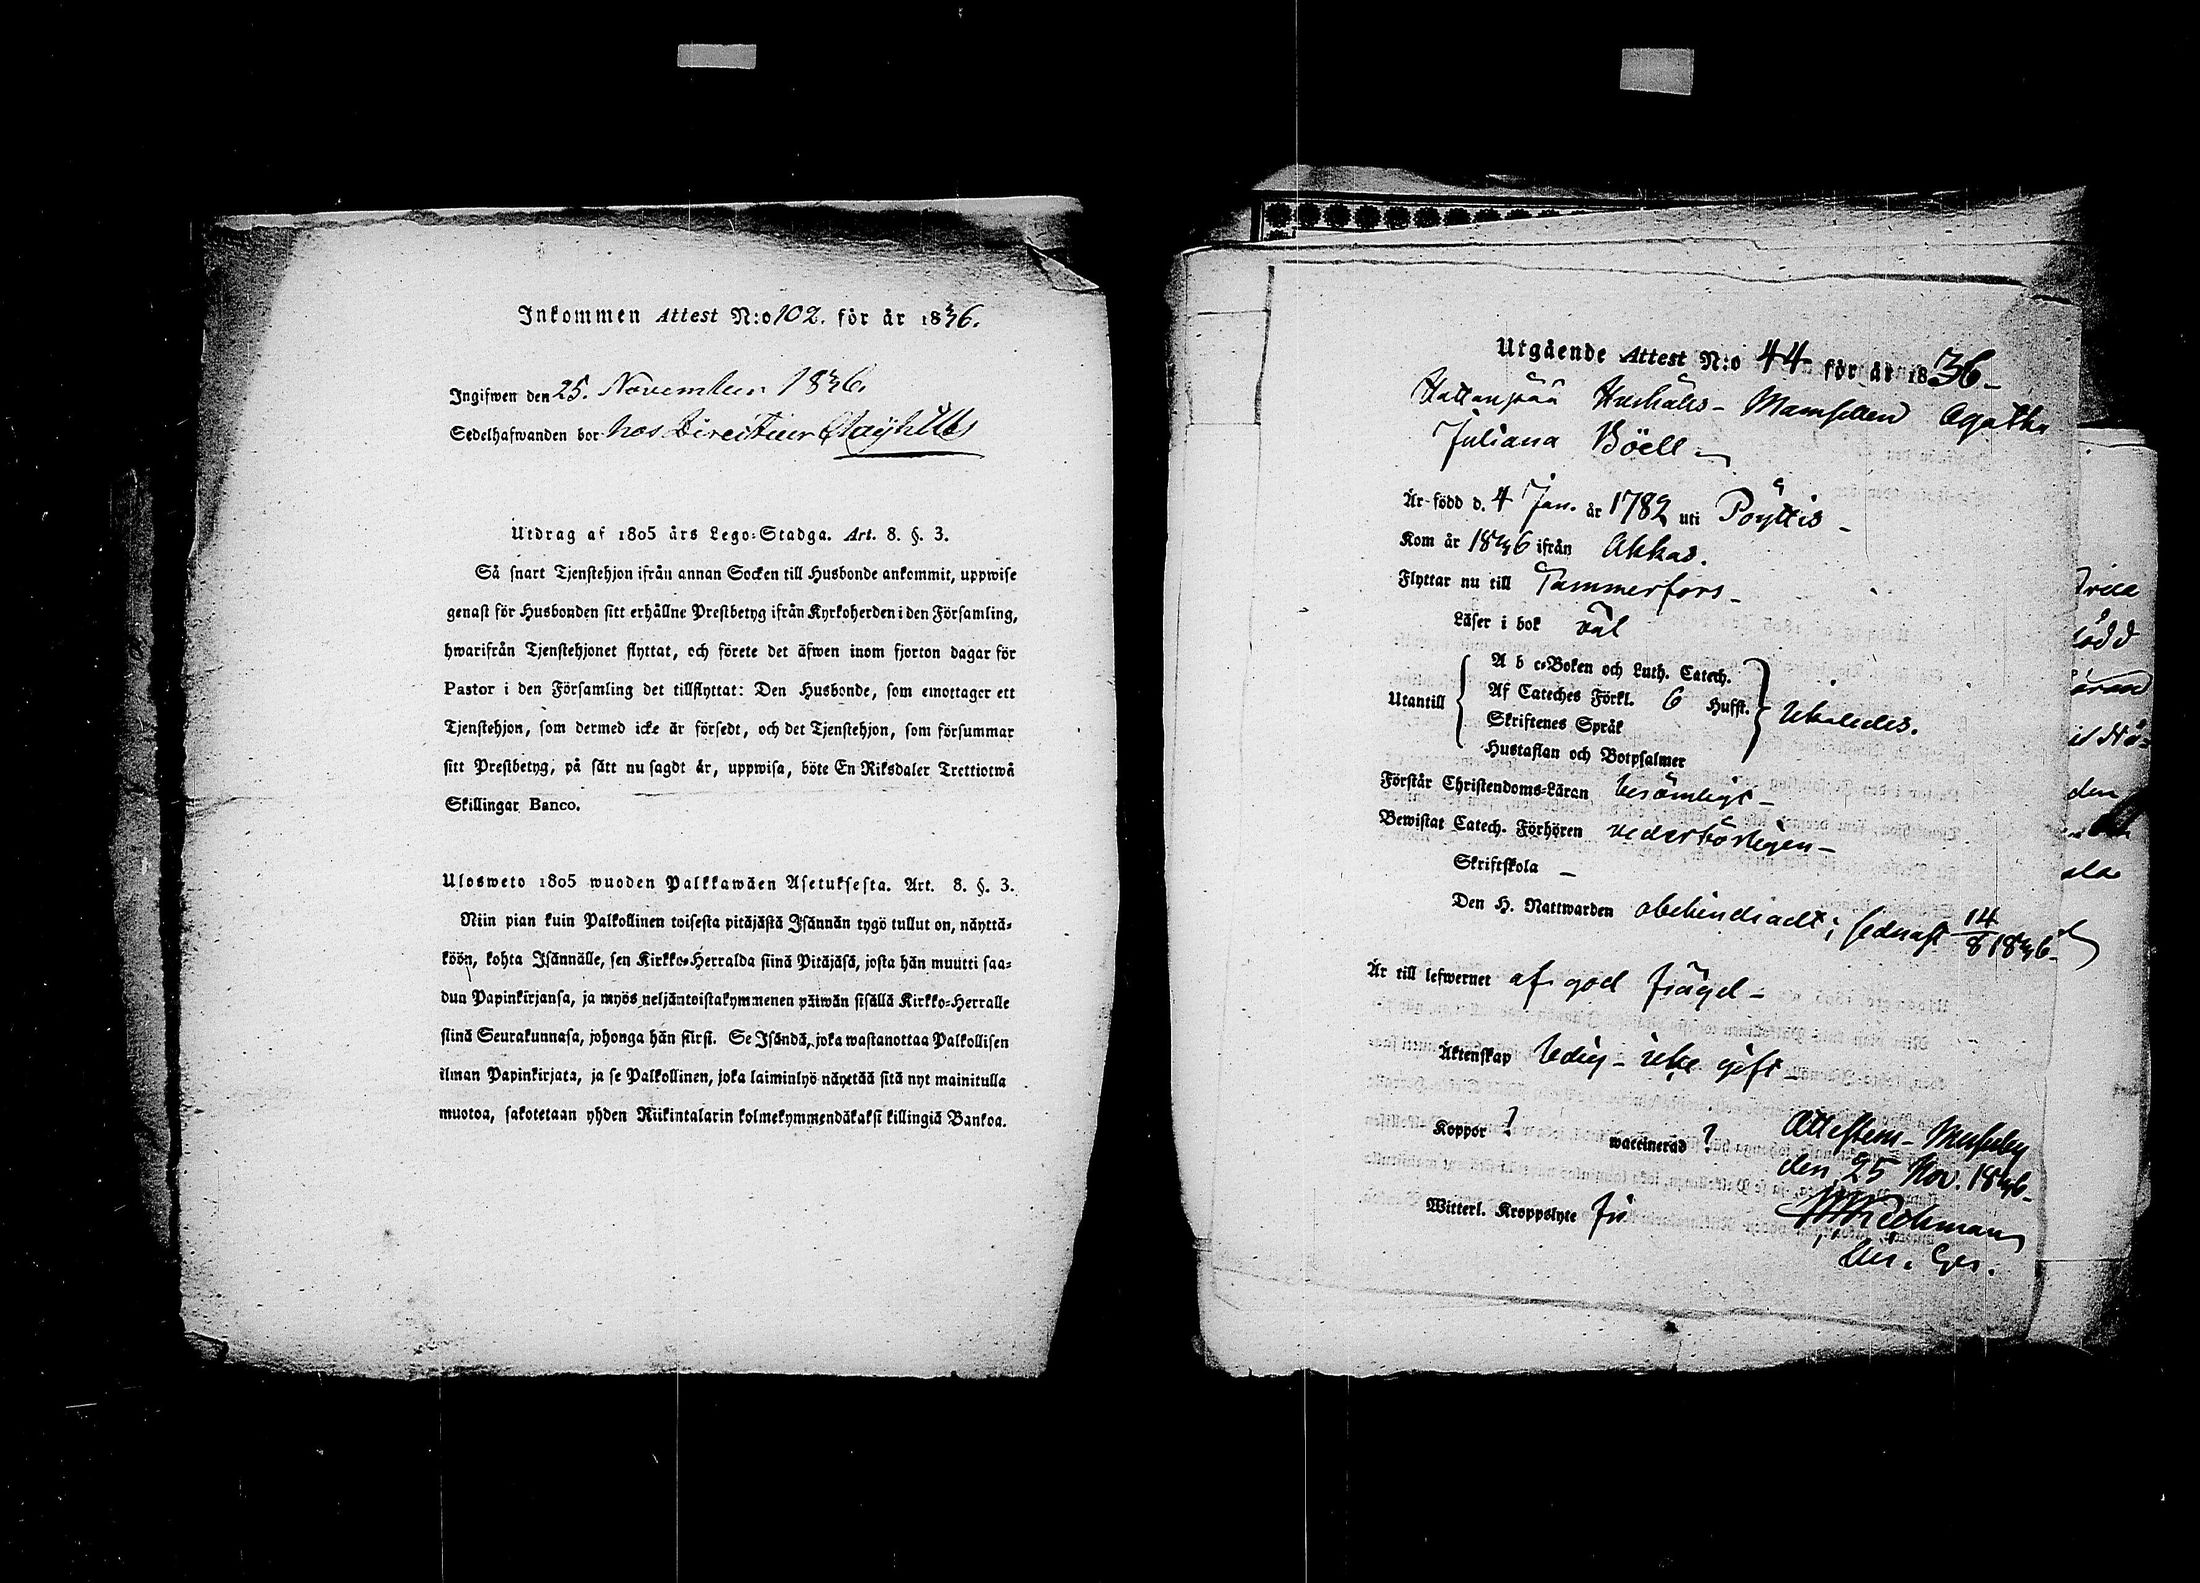 Inkommen Attest N:o 102. för år 1836.
Ingifwen den 25. November 1836.
Sedelhafwanden bor hos Directeur
Utdrag af 1805 års Lego-Stadga. Art. 8. §. 3.
Så snart Tjenstehjon ifrån annan Socken till Husbonde ankommit, uppwise
genast för Husbonden sitt erhållne Prestbetyg ifrån Kyrkoherden i den Församling,
hwarifrån Tjenstehjonet flyttat, och förete det äfwen inom fjorton dagar för
Pastor i den Församling det tillflyttat: Den Husbonde, som emottager ett
Tjenstehjon, som dermed icke är försedt, och det Tjenstehjon, som försummar
sitt Prestbetyg, på sätt nu sagdt är, uppwisa, böte En Riksdaler Trettiotwå
Skillingar Banco.
Ulosweto 1805 wuoden Palkkawäen Asetuksesta. Art. 8. §. 3.
Niin pian kuin Palkollinen toisesta pitäjästä Isännän tygö tullut on, näyttä-
köön, kohta Isännälle, sen Kirkko-Herralda siinä Pitäjäsä, josta hän muutti saa-
dun Papinkirjansa, ja myös neljäntoistakymmenen päiwän sisällä Kirkko-Herralle
siinä Seurakunnasa, johonga hän siirsi. Se Isändä, joka wastanottaa Palkollisen
ilman Papinkirjata, ja se Palkollinen, joka laiminlyö näyttää sitä nyt mainitulla
muotoa, sakotetaan yhden Riikintalarin kolmekymmendäkaksi killingiä Bankoa.
Utgående Attest N:o 44 för år 1836-
Hattanpää Hushålls-Mamsellen Agatha
Juliana Böell
Är född d. 4 Jan. år 1782 uti Pöyttis-
Kom år 1836 ifrån Akkas.
Flyttar nu till Tammerfors-
Läser i bok väl
A b c-Boken och Luth. Catech.
Utantill Af Cateches Förkl. 6 Hufst. likaledes.
Skriftenes Språk
Hustaflan och Botpsalmer
Förstår Christendoms-Läran berömligt-
Bewistat Catech. Förhören vederbörligen-
Skriftskola -
Den H. Nattwarden obehindradt; sednast 14/8 1836-
Är till lefwernet af god frägd-
Äktenskap ledig - icke gift-
Koppor ? waccinerad ? Attesteras- Messuby
den 25 Nov. 1836-
Witterl. Kroppslyte fri